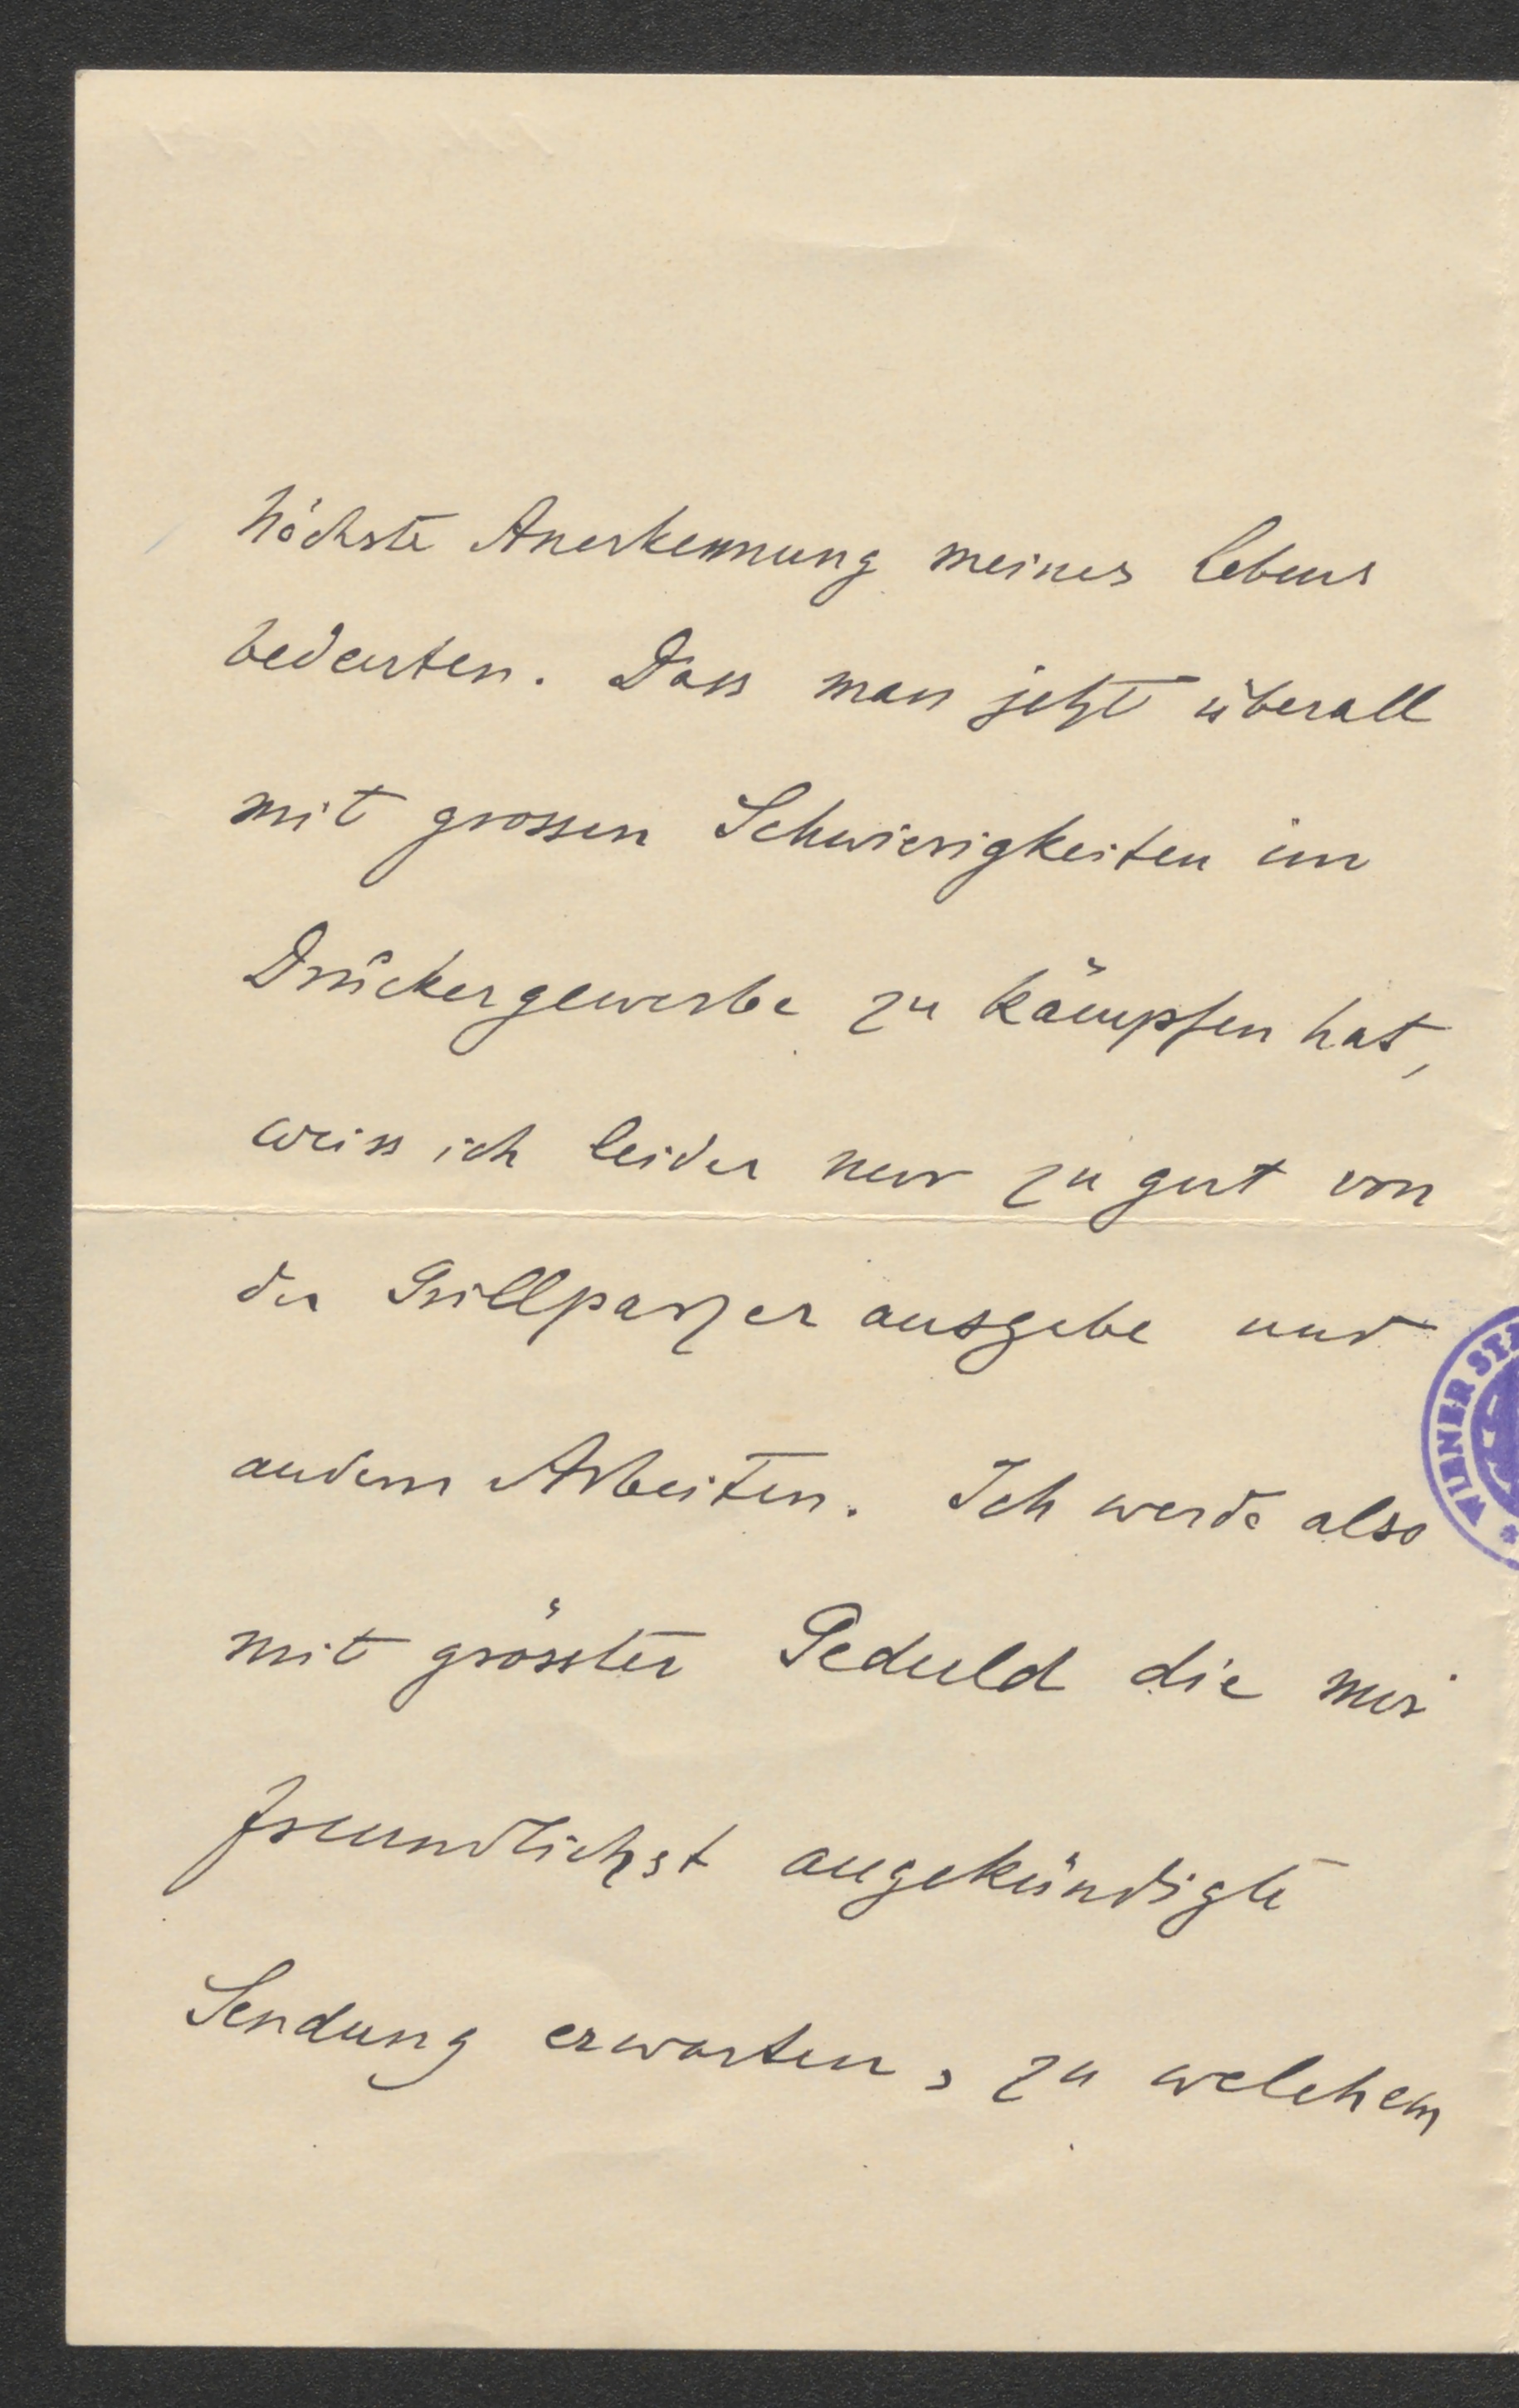 höchste Anerkennung meines Lebens
bedeuten. Dass man jetzt überall
mit grossen Schwierigkeiten im
Druckergewerbe zu kämpfen hat,
weiss ich leider nur zu gut von
der Grillparzer ausgabe und
andern Arbeiten. Ich werde also
mit grösster Geduld die mir
freundlichst angekündigte
Sendung erwarten, zu welchem
WIENER